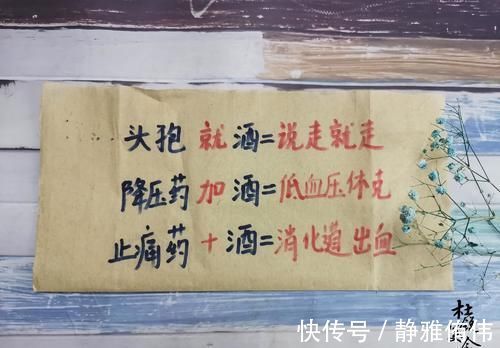 头孢就酒=说走就走
降压药加酒=低血压休克
止痛药+酒=消化道出血
快传号/静雅俏伟